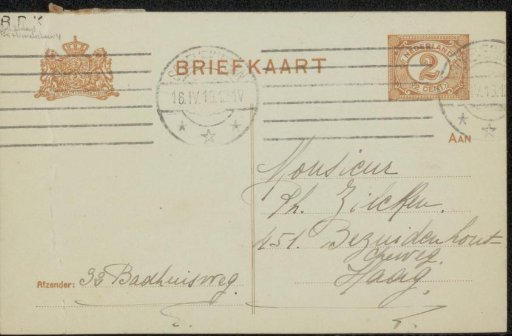 R.P.K
BRIEFKAART
NEDERLAND
2
2 CENT
AAN
Monsieur
Ph. Zilcken.
151. Bezuidenhout-
sche weg.
Haag.
Afzender: 33 Badhuisweg.